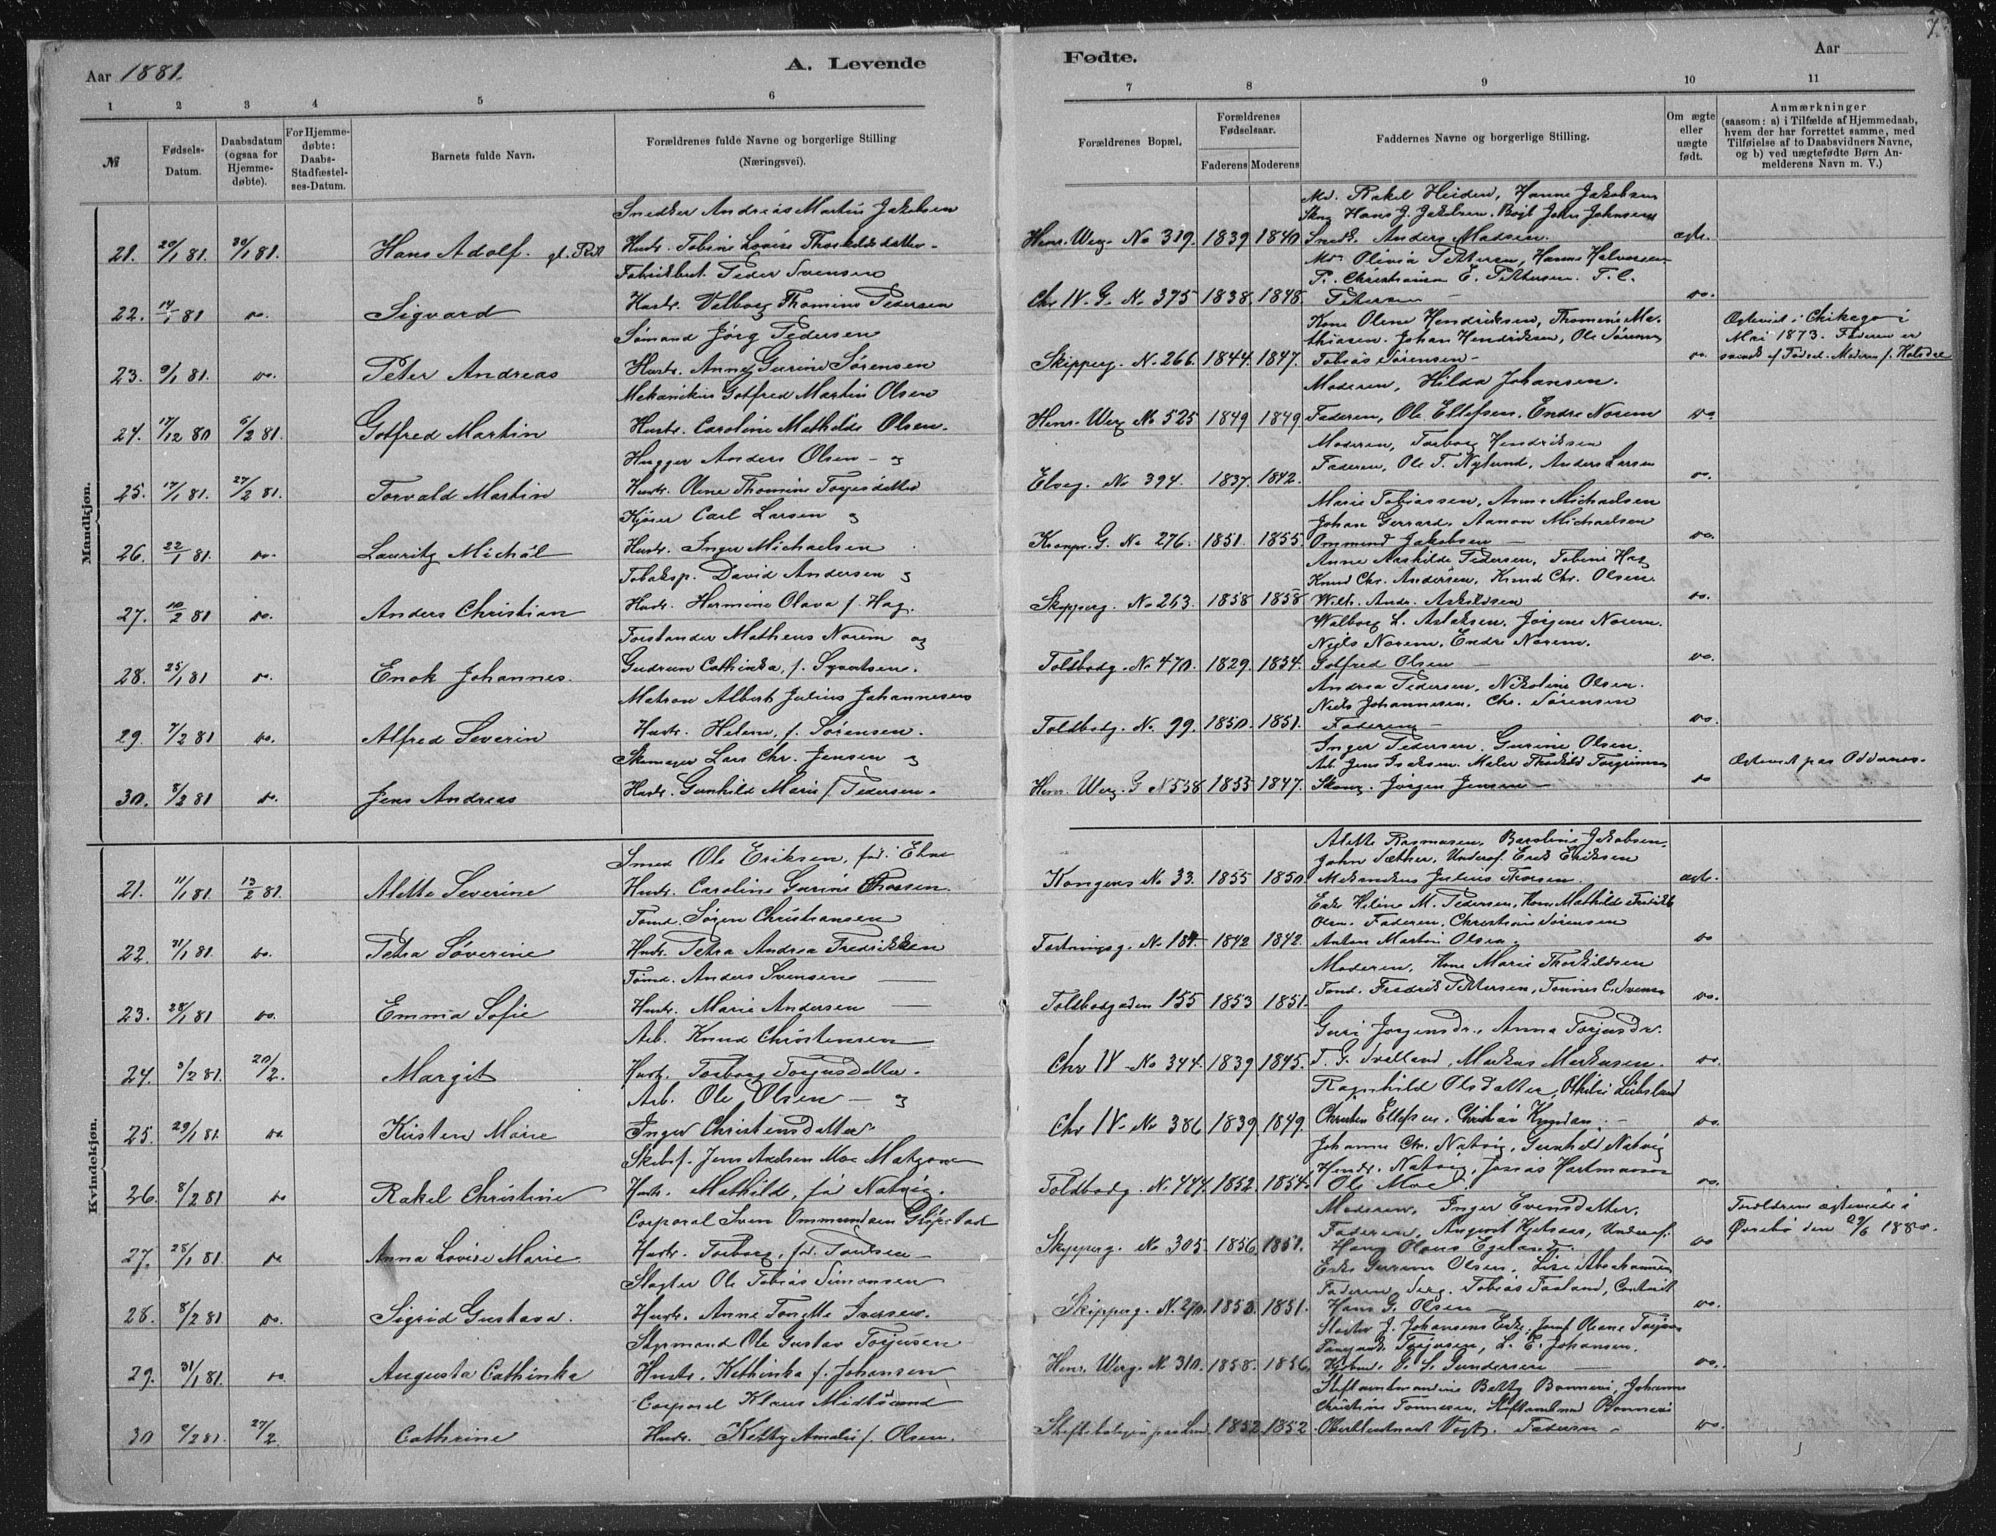 Aar 1881.
A. Levende
Fødte.
Aar
7.
1 2 3 4 5 6 7 8 9 10 11
№
Fødsels-
Datum.
Daabsdatum
(ogsaa for
Hjemme-
døbte).
For Hjemme-
døbte:
Daabs-
Stadfæstel-
ses-Datum.
Barnets fulde Navn.
Forældrenes fulde Navne og borgerlige Stilling
(Næringsvei).
Forældrenes Bopæl.
Forældrenes
Fødselsaar.
Faderens Moderens
Faddernes Navne og borgerlige Stilling.
Om ægte
eller
uægte
født.
Anmærkninger
(saasom: a) i Tilfælde af Hjemmedaab,
hvem der har forrettet samme, med
Tilføielse af to Daabsvidners Navne,
og b) ved uægtefødte Børn An-
melderens Navn m. V.)
Mandkjøn.
Snedker Andreas Martin Jakobsen
Md. Rakel Heiden, Hanne Jakobsen
Hans J. Jakobsen, John Johnsen
21. 20/1 81. 30/1 81. Hans Adolf. Hustr. Tobine Lovise Thorkildsdatter Henr. Werg. No 319. 1839 1840 Snedk. Anders Madsen. ægte.
Fabrikbest. Peder Svensen
Md. Olivia Pettersen, Hanne Halvorsen
P. Christiansen E. Pettersen. T. C.
22. 14/1 81 do. Sigvard Hustr. Valborg Thomine Pedersen Chr IV. G. No 375 1838. 1848. Petersen do.
Sømand Jørg Pedersen
Kone Olene Hendriksen, Thomine Ma-
thiasen. Johan Hendriksen, Ole Sørensen
Ægteviet i Chikago i
Mai 1873. Faderen er
23. 9/1 81. do. Peter Andreas Hustr. Anne Gurine Sørensen Skipperg. No. 266. 1844. 1847. Tobias Sørensen do. svensk af Fødsel. Moderen f. Holsdal
Mekanikus Gotfred Martin Olsen
Moderen, Hilda Johansen.
24. 17/12 80 6/2 81. Gotfred Martin Hustr. Caroline Mathilde Olsen. Henr. Werg No 525 1849 1849 Faderen, Ole Ellefsen, Endre Norem do.
Hugger Anders Olsen og
Moderen, Torborg Hendriksen
Faderen, Ole T. Nylund, Anders Larsen
25. 17/1 81. 27/2 81. Torvald Martin Hustr. Olene Thomine Torjesdatter Elveg. No 394. 1837. 1842. do.
Kjører Carl Larsen og
Marie Tobiassen, Anne Michaelsen
Johan Gerrard, Aanon Michaelsen
26. 22/1 81 do. Lauritz Michäl Hustr. Inger Michaelsen Kronpr. G. No 276. 1851. 1855. Ommund Jakobsen do.
Tobaksp. David Andersen og
Anne Aashilde Pedersen, Tobine Hag
Knud Chr. Andersen, Knud Chr. Olsen.
27. 10/2 81 do. Anders Christian Hustr. Hermine Olava f. Hag. Skipperg. No 263. 1858 1858 Wilh. Andr. Askildsen do.
Forstander Matheus Norem og
Walborg L. Aslaksen, Jørgine Norem.
Niels Norem, Endre Norem.
28. 25/1 81 do. Enok Johannes. Gudrun Cathinka, f. Syvertsen. Toldbodg. No 470. 1829. 1854. Gotfred Olsen do.
Matros Albert Julius Johannesen
Andrea Pedersen, Nikoline Olsen.
Niels Johannesen, Chr. Sørensen
29. 7/2 81 do. Alfred Severin Hustr. Helene, f. Sørensen. Toldbodg. No. 99. 1850. 1851. Faderen do.
Skomager Lars Chr. Jensen og
Inger Pedersen. Gurine Olsen.
Arb. Jens Isaksen. Maler Thorkild Torgrimsen Ægteviet paa Oddernes.
30. 8/2 81 do. Jens Andreas Hustr. Gunhild Marie f. Pedersen. Henr. Werg. G No 538 1855 1847. Skom. Jørgen Jensen do
Kvindekjøn.
Smed Ole Eriksen, fød. Elne
Alette Rasmusen, Baroline Jakobsen,
John Sæther, Underof. Erik Eriksen
21. 11/1 81. 13/2 81. Alette Severine Hustr. Caroline Gurine Thorsen. Kongens No 33. 1855 1850 Mekanikus Julius Thorsen. ægt.
Tømd. Søren Christiansen
Enke Helene M. Pedersen, Kone Mathilde Fredrikke
Olsen. Faderen, Christian Sørensen
22. 31/1 81. do. Petra Søverine Hustr. Petra Andrea Fredrikken Festningsg. No 184. 1842 1842. Anton Martin Olsen. do
Tømd. Anders Svensen
Moderen, Kone Marie Thorkildsen
Tømd. Fredrik Pettersen, Tønnes C. Svensen
23. 28/1 81 do. Emma Sofie Hustr. Marie Andersen Toldbodgaden 155 1853 1851. do.
Arb. Knud Christensen
Guri Jørgensdr., Anna Torjusdr.
24. 3/2 81. 20/2. Margit Hustr. Torborg Torjusdatter. Chr IV No 344. 1839 1845. T. G. Tvelland, Markus Markusen. do.
Arb. Ole Olsen og
Ragnhild Olsdatter,
25. 29/1 81. do Kirsten Marie Inger Christensdatter Chr IV. No 386 1839. 1849. Christen Ellefsen, do.
Skibsf. Jens Axelsen Moe
Johanne Chr. Natvig, Gunhild Natvig
Hendr. Natvig, Josias Hartmann
26. 8/2 81 do Rakel Christine Hustr. Mathilde, fød Natvig. Toldbodg. No. 444. 1852. 1854. Ole Moe. do.
Corporal Sven Ommundsen Gløpstad
Moderen, Inger Evensdatter,
Faderen, August Underof.
Forældrene ægteviede i
Øvrebø den 29/6 1880.
27. 25/1 81. do Anna Lovise Marie. Hustr. Torborg, fød. Skipperg. No 305. 1856. 1851. Hans Olaus Egeland. do
Slagter Ole Tobias Simonsen
Enke Gurine Olsen, Lise Abrahamsen
Faderen Serg. Tobias Faaland,
28. 8/2 81 do. Sigrid Gustava. Hustr. Anne Tonette Iversen. Skipperg. No. 270. 1850. 1851. Hans G. Olsen do.
Styrmand Ole Gustav Torjusen
Slagter J. Johansens Enke, Jomf Olene Torjusen
Torjusen, L. E. Johansen.
29. 31/1 81. do. Augusta Cathinka Hustr. Kethinka f. Johansen Henr. Werg. No. 310. 1858. 1856. Gundersen do.
Corporal Klaus Midtsund
Stiftamtmandinde Betty Bonnevi, Johanne
Christine Tønnesen, Stiftamtmd Bonnevi
30 2/2 81. 27/2. Cathrine Hustr. Ketty Amalie f. Olsen. 1852. 1852 Oberstleutnant Vogt. Faderen do.